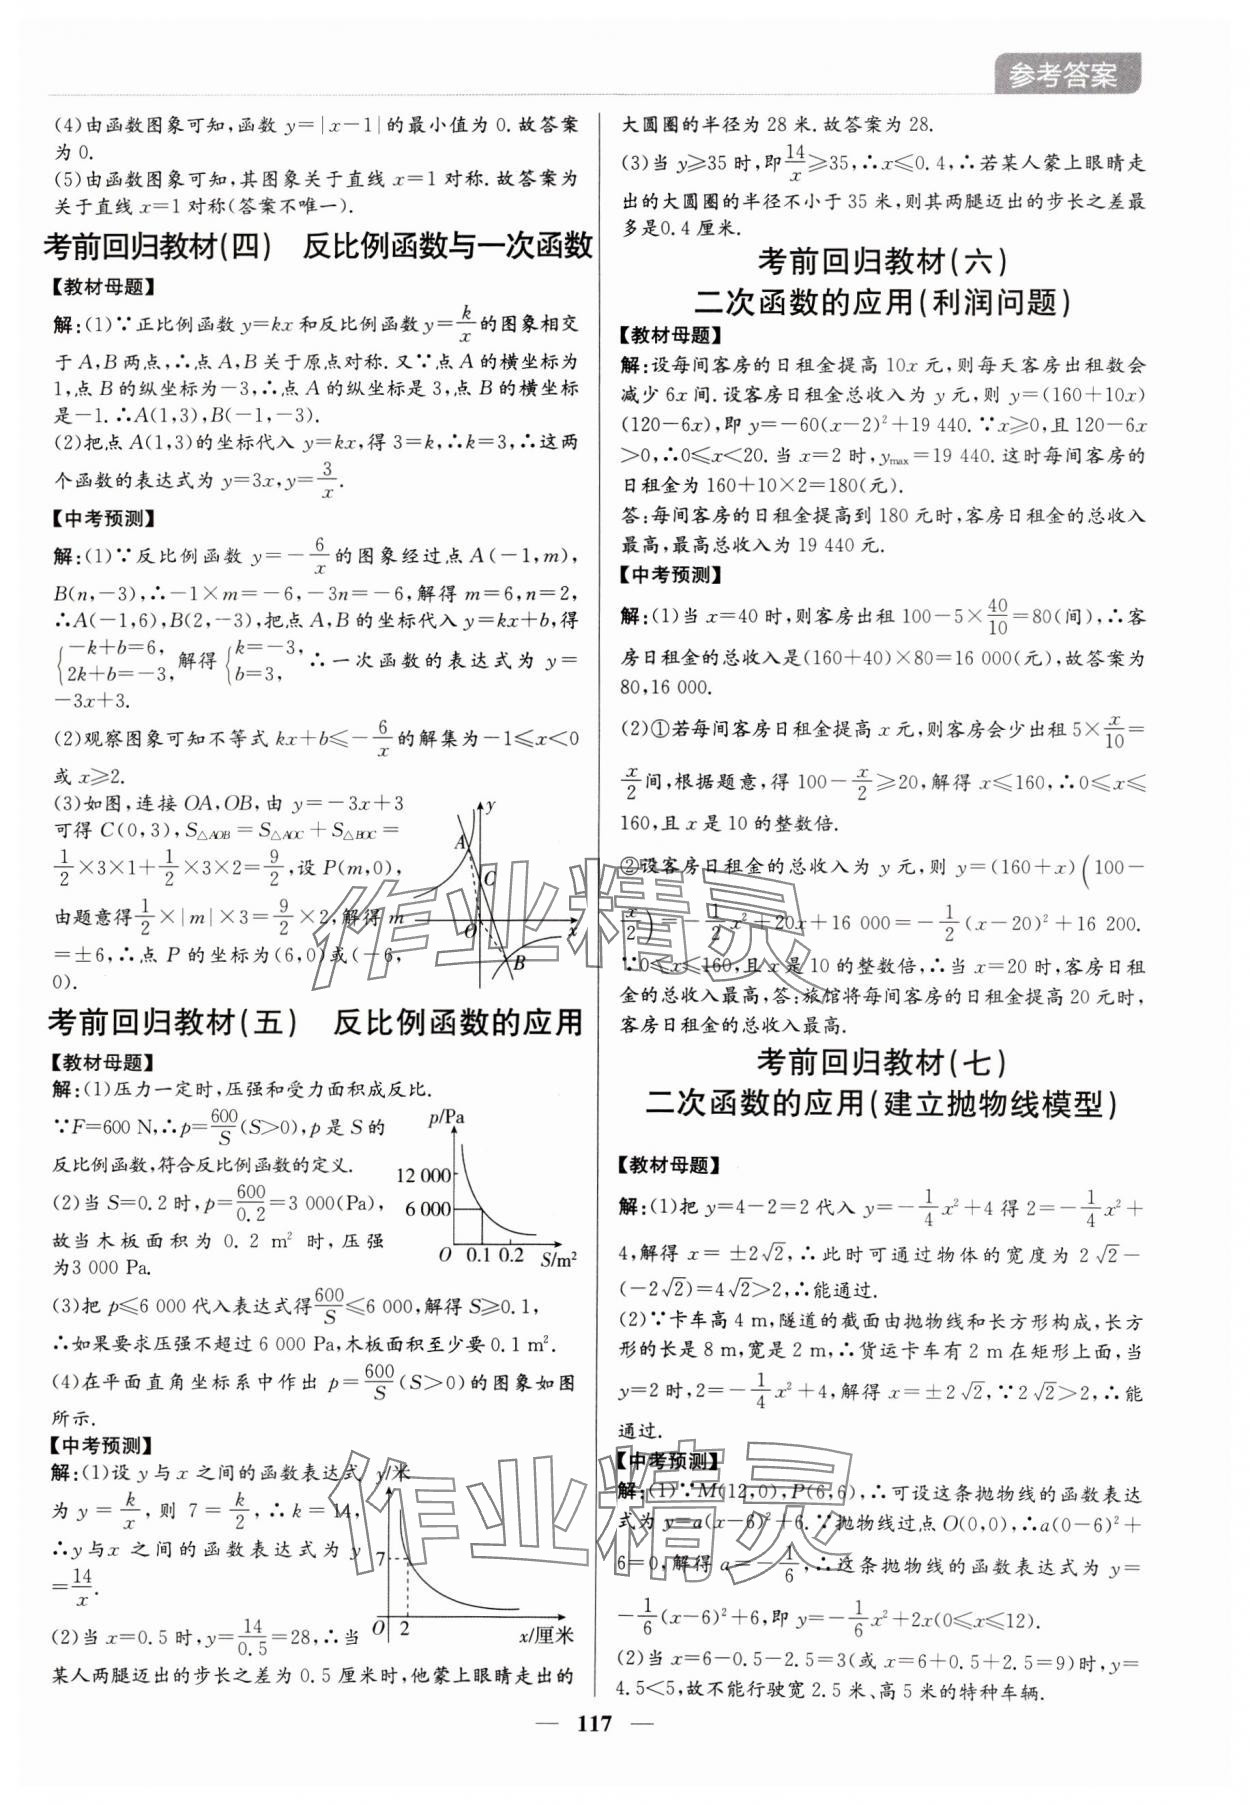 参考答案
(4)由函数图象可知,函数 y=|x-1|的最小值为 0.故答案
为 0.
(5)由函数图象可知,其图象关于直线 x=1 对称.故答案为
关于直线 x=1 对称(答案不唯一).
考前回归教材(四) 反比例函数与一次函数
【教材母题】
解:(1)∵正比例函数 y=kx 和反比例函数 y=k/x 的图象相交
于 A,B 两点,∴点 A,B 关于原点对称.又∵点 A 的横坐标为
1,点 B 的纵坐标为-3,∴点 A 的纵坐标是 3,点 B 的横坐标
是-1.∴A(1,3),B(-1,-3).
(2)把点 A(1,3)的坐标代入 y=kx,得 3=k,∴k=3,∴这两
个函数的表达式为 y=3x,y=3/x.
【中考预测】
解:(1)∵反比例函数 y=-6/x 的图象经过点 A(-1,m),
B(n,-3),∴-1×m=-6,-3n=-6,解得 m=6,n=2,
∴A(-1,6),B(2,-3),把点 A,B 的坐标代入 y=kx+b,得
{-k+b=6, 2k+b=-3, 解得 {k=-3, b=3, ∴一次函数的表达式为 y=
-3x+3.
(2)观察图象可知不等式 kx+b≤-6/x 的解集为-1≤x<0
或 x≥2.
(3)如图,连接 OA,OB,由 y=-3x+3
可得 C(0,3),S△AOB=S△AOC+S△BOC=
1/2×3×1+1/2×3×2=9/2,设 P(m,0),
由题意得1/2×|m|×3=9/2×2,解得 m
=±6,∴点 P 的坐标为(6,0)或(-6,
0).
y
A
C
O
x
B
考前回归教材(五) 反比例函数的应用
【教材母题】
解:(1)压力一定时,压强和受力面积成反比.
∵F=600 N,∴p=600/S(S>0),p 是 S 的
反比例函数,符合反比例函数的定义.
(2)当 S=0.2 时,p=600/0.2=3 000(Pa),
故当木板面积为 0.2 m² 时,压强
为3 000 Pa.
p/Pa
12 000
6 000
O 0.1 0.2 S/m²
(3)把 p≤6 000 代入表达式得600/S≤6 000,解得 S≥0.1,
∴如果要求压强不超过 6 000 Pa,木板面积至少要 0.1 m².
(4)在平面直角坐标系中作出 p=600/S(S>0)的图象如图
所示.
【中考预测】
解:(1)设 y 与 x 之间的函数表达式
为 y=k/x,则 7=k/2,∴k=14,
∴y 与 x 之间的函数表达式为 y
=14/x.
y/米
7
O 2 x/厘米
(2)当 x=0.5 时,y=14/0.5=28,∴当
某人两腿迈出的步长之差为 0.5 厘米时,他蒙上眼睛走出的
大圆圈的半径为 28 米.故答案为 28.
(3)当 y≥35 时,即14/x≥35,∴x≤0.4,∴若某人蒙上眼睛走
出的大圆圈的半径不小于 35 米,则其两腿迈出的步长之差最
多是0.4 厘米.
考前回归教材(六)
二次函数的应用(利润问题)
【教材母题】
解:设每间客房的日租金提高 10x 元,则每天客房出租数会
减少 6x 间.设客房日租金总收入为 y 元,则 y=(160+10x)
(120-6x),即 y=-60(x-2)²+19 440.∵x≥0,且 120-6x
>0,∴0≤x<20.当 x=2 时,ymax=19 440.这时每间客房的
日租金为 160+10×2=180(元).
答:每间客房的日租金提高到 180 元时,客房日租金的总收入
最高,最高总收入为 19 440 元.
【中考预测】
解:(1)当 x=40 时,则客房出租 100-5×40/10=80(间),∴客
房日租金的总收入是(160+40)×80=16 000(元),故答案为
80,16 000.
(2)①若每间客房日租金提高 x 元,则客房会少出租 5×x/10=
x/2间,根据题意,得 100-x/2≥20,解得 x≤160,∴0≤x≤
160,且 x 是 10 的整数倍.
②设客房日租金的总收入为 y 元,则 y=(160+x)(100-
x/2)=-1/2x²+20x+16 000=-1/2(x-20)²+16 200.
∵0≤x≤160,且 x 是 10 的整数倍,∴当 x=20 时,客房日租
金的总收入最高,答:旅馆将每间客房的日租金提高 20 元时,
客房日租金的总收入最高.
考前回归教材(七)
二次函数的应用(建立抛物线模型)
【教材母题】
解:(1)把 y=4-2=2 代入 y=-1/4x²+4 得 2=-1/4x²+
4,解得 x=±2√2,∴此时可通过物体的宽度为 2√2-
(-2√2)=4√2>2,∴能通过.
(2)∵卡车高 4 m,隧道的截面由抛物线和长方形构成,长方
形的长是 8 m,宽是 2 m,∴货运卡车有 2 m 在矩形上面,当
y=2 时,2=-1/4x²+4,解得 x=±2√2,∵2√2>2,∴能
通过.
【中考预测】
解:(1)∵M(12,0),P(6,6),∴可设这条抛物线的函数表达
式为 y=a(x-6)²+6.∵抛物线过点 O(0,0),∴a(0-6)²+
6=0,解得 a=-1/6,∴这条抛物线的函数表达式为 y=
-1/6(x-6)²+6,即 y=-1/6x²+2x(0≤x≤12).
(2)当 x=6-0.5-2.5=3(或 x=6+0.5+2.5=9)时,y=
4.5<5,故不能行驶宽 2.5 米、高 5 米的特种车辆.
— 117 —
作业精灵
作业精灵